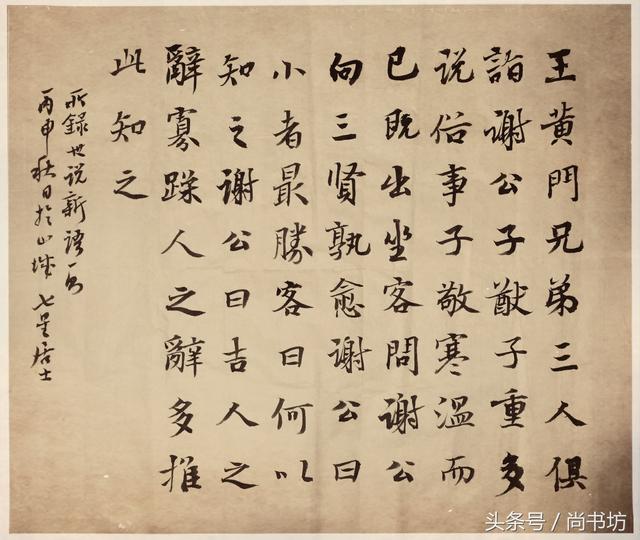 王黄門兄弟三人俱
詣谢公子猷子重多
说俗事子敬寒温而
已既出坐客問谢公
向三贤孰愈谢公曰
小者最勝客曰何以
知之谢公曰吉人之
辭寡躁人之辭多推
此知之
錄世说新語一
丙申秋日於山城 七星居士
头条号 / 尚书坊